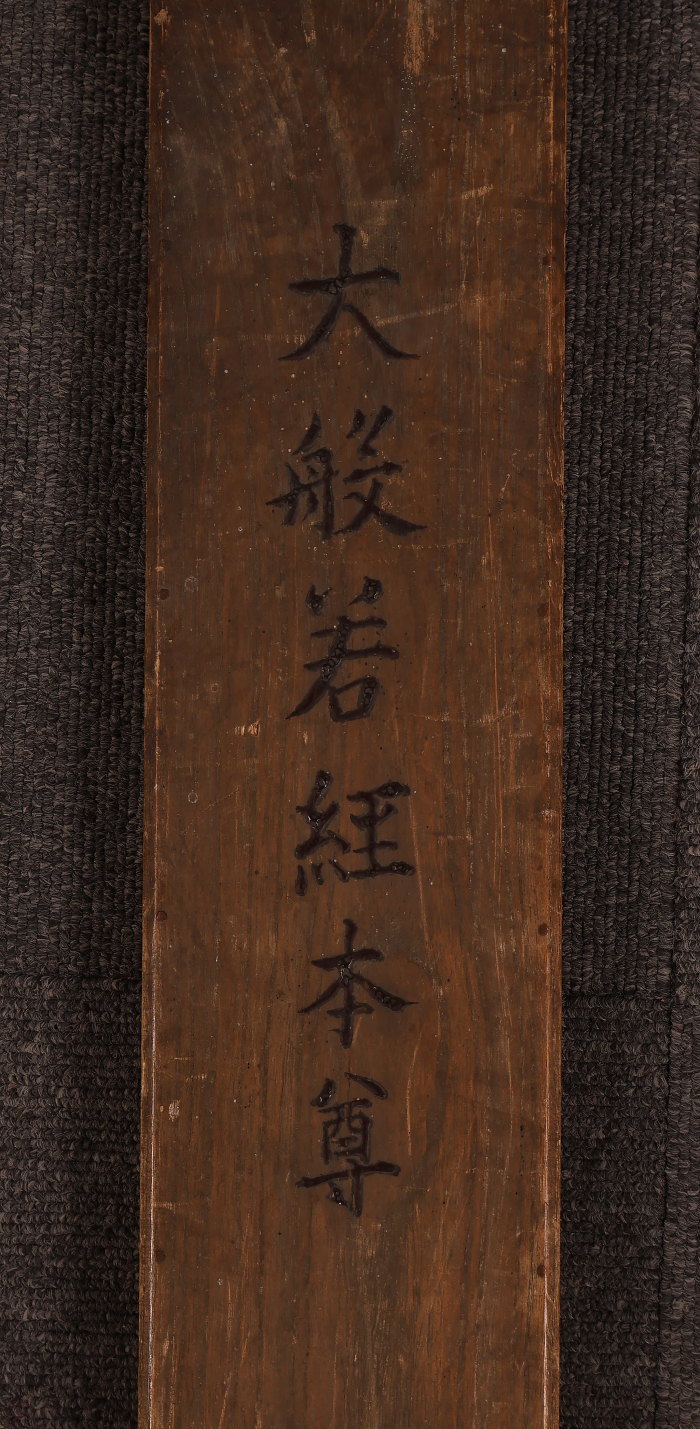 大般若経本尊